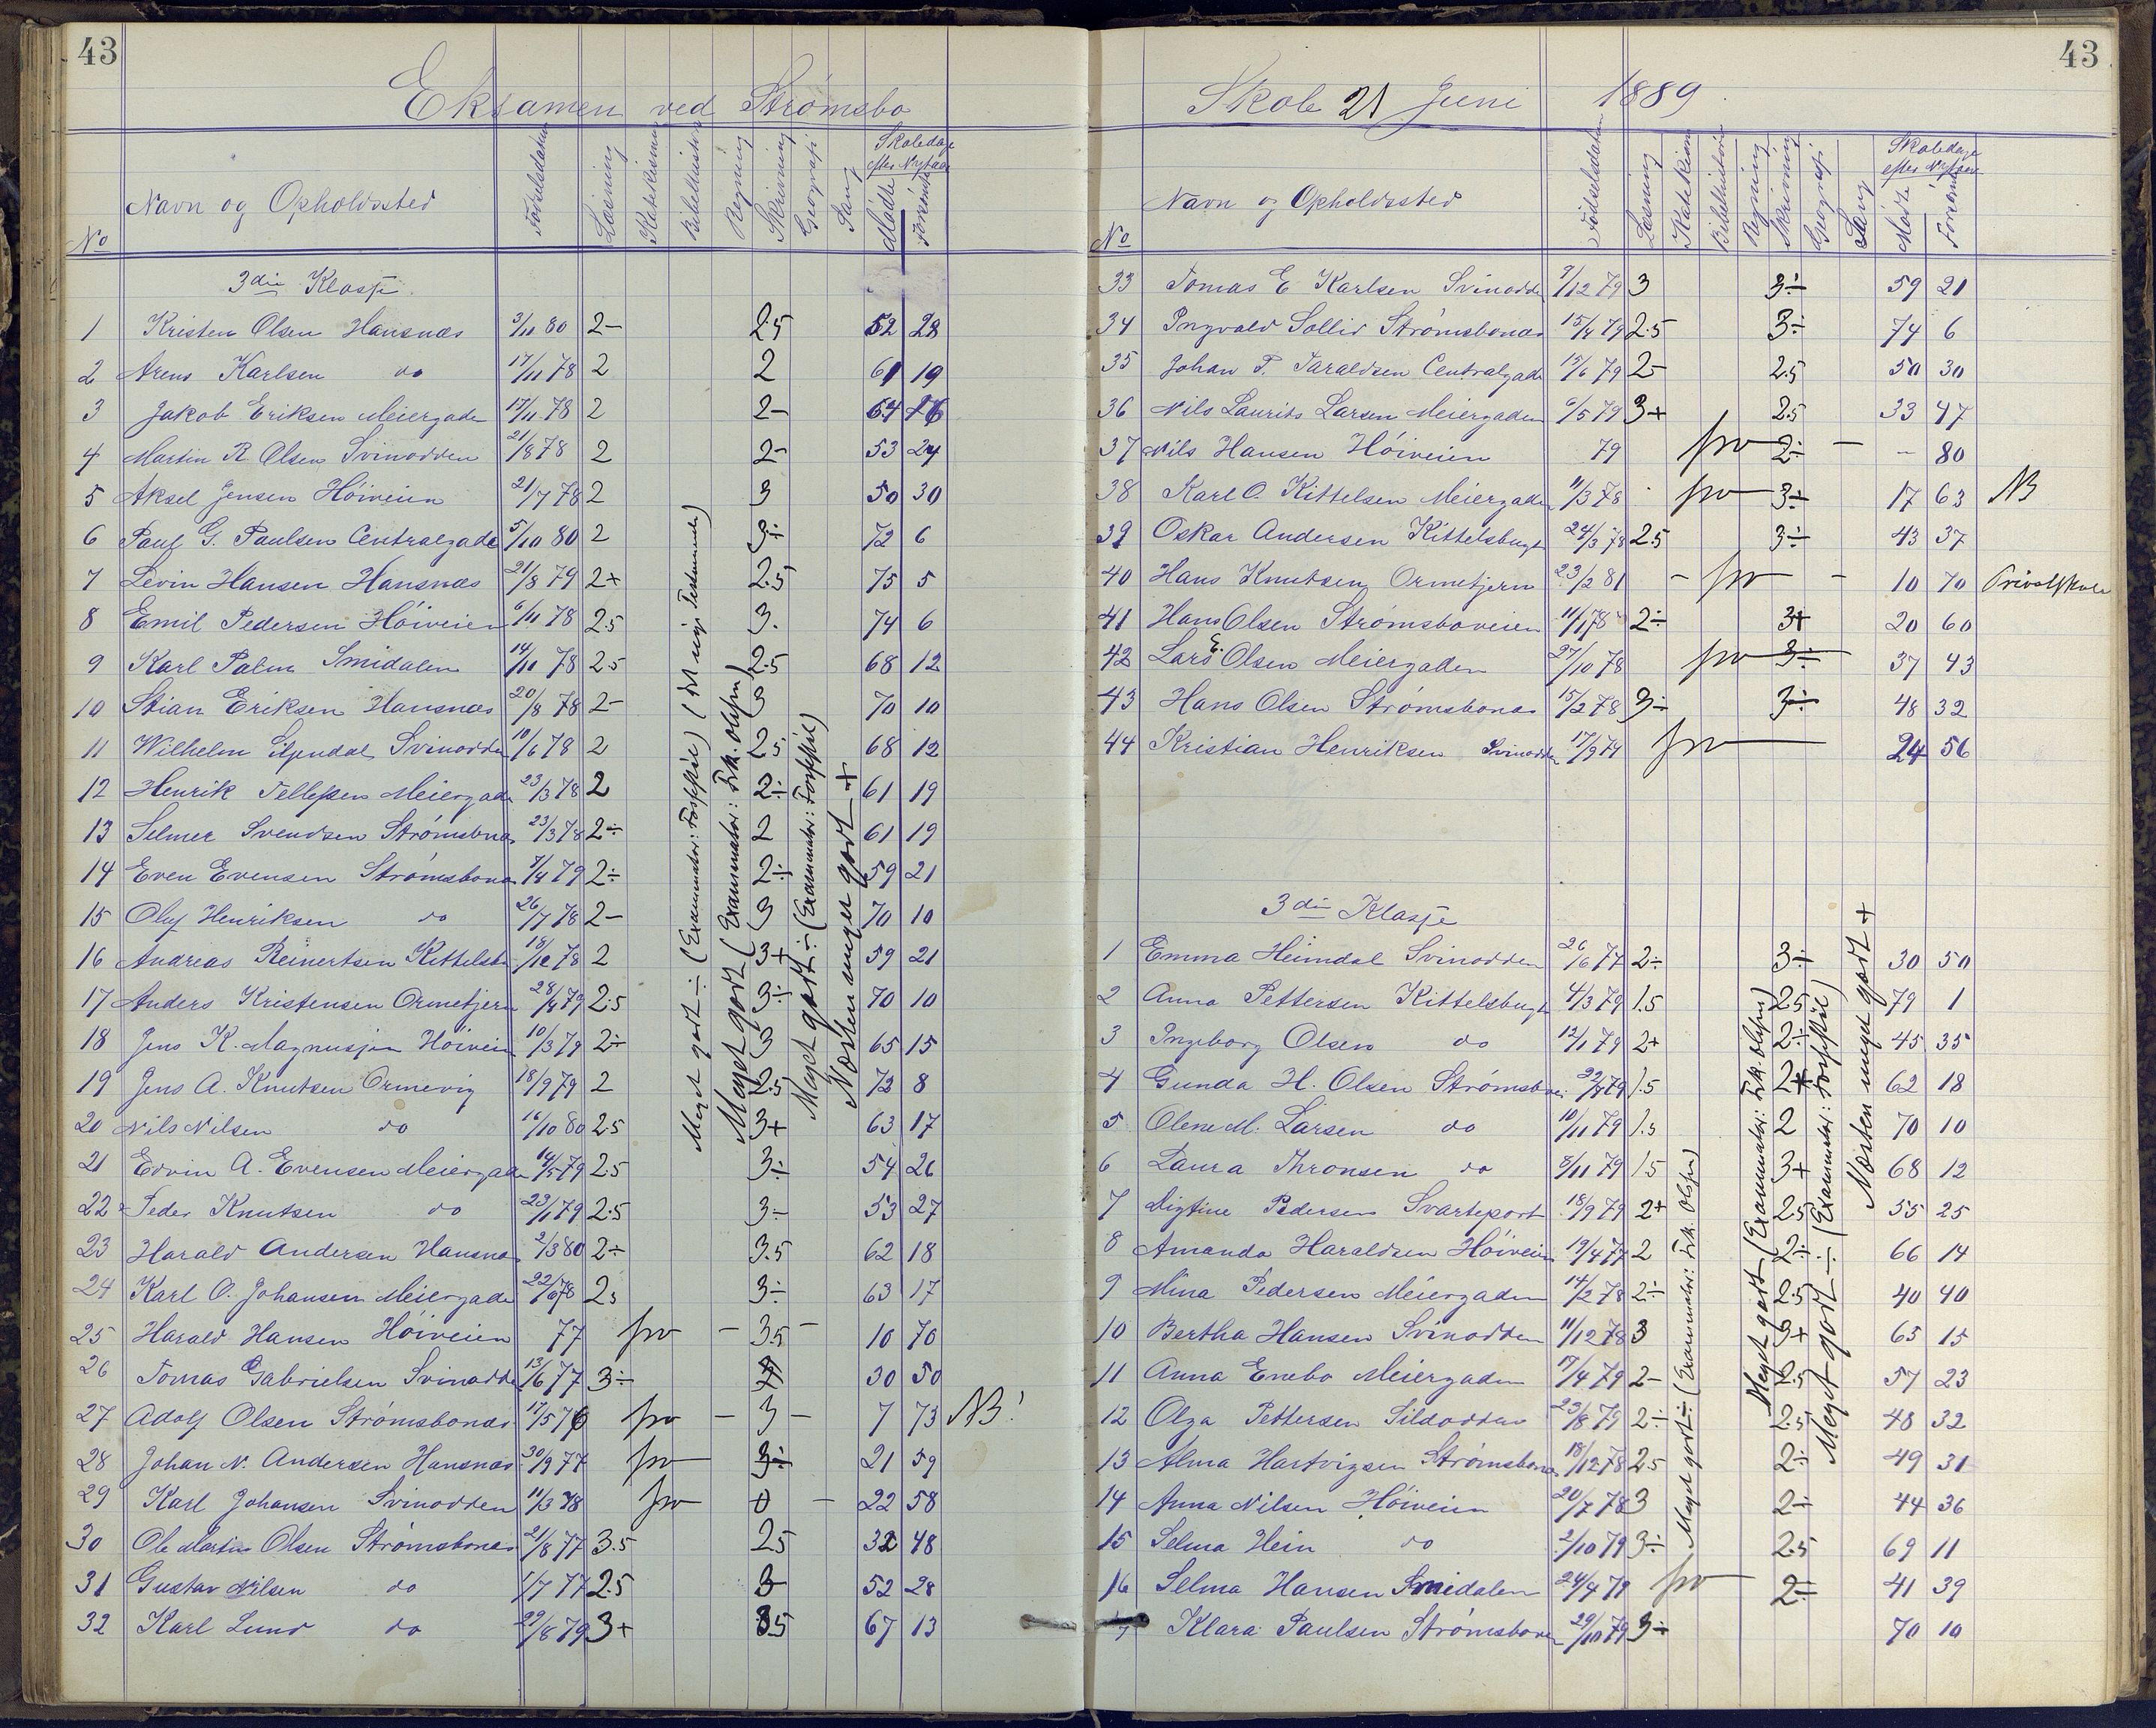 43
Eksamen ved Strømsbo
No
Navn og Opholdssted
Fødselsdatum
Læsning
Katekismus
Bibelhistorie
Regning
Skrivning
Geografi
Sang
Skoledage efter Nytaar
Mødt
Forsømt
3die Klasse
1 Kristen Olsen Hansnæs 3/11 80 2- 2.5 52 28
2 Arens Karlsen do 17/11 78 2 2 61 19
3 Jakob Eriksen Meiergaden 17/11 78 2 2- 64 16
4 Martin R. Olsen Svinodden 21/8 78 2 2- 53 27
5 Aksel Jensen Höiveien 21/7 78 2 3 50 30
6 Paul G. Paulsen Centralgade 5/10 80 2 3÷ 72 6
7 Levin Hansen Hansnæs 21/8 79 2+ 2.5 75 5
8 Emil Pedersen Höiveien 6/11 78 2.5 3. 74 6
9 Karl Palm Smidalen 14/10 78 2.5 2.5 68 12
10 Stian Eriksen Hansnæs 20/8 78 2- 3 70 10
11 Wilhelm Svinodden 10/6 78 2 2.5 68 12
12 Henrik Tellefsen Meiergade 23/3 78 2 2÷ 61 19
13 Selmer Svendsen Strømsbnæs 23/3 78 2÷ 2 61 19
14 Even Evensen Strømsbonæs 7/4 79 2÷ 2÷ 59 21
15 Oluf Henriksen do 26/7 78 2- 3 70 10
16 Andreas Reinertsen Kittelsb. 18/12 78 2 3+ 59 21
17 Anders Kristensen Ormetjern 28/4 79 2.5 3÷ 70 10
18 Jens K. Magnusjen Höiveien 10/3 79 2÷ 3 65 15
19 Jens A. Knutsen Ormevig 18/9 79 2 2.5 72 8
20 Nils Nilsen do 16/10 80 2.5 3+ 63 17
21 Edvin A. Evensen Meiergade 14/5 79 2.5 3÷ 54 26
22 Peder Knutsen do 23/1 79 2.5 3÷ 53 27
23 Harald Andersen Hansnæs 2/3 80 2÷ 3.5 62 18
24 Karl O. Johansen Meiergade 22/6 78 2.5 3÷ 63 17
25 Harald Hansen Höiveien 77 frv - 3.5 - 10 70
26 Tomas Gabrielsen Svinodden 13/6 77 3÷ 30 50
27 Adolf Olsen Strømsbonæs 17/5 76 frv - 3 - 7 73 NB!
28 Johan N. Andersen Hansnæs 30/9 77 frv 3÷ 21 59
29 Karl Johansen Svinodden 11/3 78 frv - 0 - 22 58
30 Ole Martin Olsen Strømsbonæs 21/8 77 3.5 2.5 32 48
31 Gustav Nilsen do 1/7 77 2.5 3 52 28
32 Karl Lund do 22/8 79 3+ 3.5 67 13
Meget godt ÷ (Examinator: Fosskjøl) (det nye Testamente)
Meget godt (Examinator: Frk. Olsen)
Meget godt ÷ (Examinator: Fosskjøl)
Næsten meget godt +
43
Skole 21 Juni 1889
No
Navn og Opholdssted
Fødselsdatum
Læsning
Katekism
Bibelhistorie
Regning
Skrivning
Geografi
Sang
Skoledage efter Nytaar
Mødt
Forsømt
33 Tomas E Karlsen Svinodde 9/12 79 3 3÷ 59 21
34 Ingvald Sollid Strømsbonæs 15/4 79 2.5 3÷ 74 6
35 Johan P. Taraldsen Centralgade 15/6 79 2- 2.5 50 30
36 Nils Laurits Larsen Meiergaden 6/5 79 3+ 2.5 33 47
37 Nils Hansen Höiveien 79 frv 2÷ - - 80
38 Karl O. Kittelsen Meiergade 11/3 78 frv 3÷ 17 63 NB
39 Oskar Andersen Kittelsbugt 24/3 78 2.5 3÷ 43 37
40 Hans Knutsen Ormetjern 23/2 81 - frv - 10 70 Privatskole
41 Hans Olsen Strømsboveien 11/1 78 2÷ 3+ 20 60
42 Lars E. Olsen Meiergaden 27/10 78 frv 3÷ 37 43
43 Hans Olsen Strømsbonæs 15/2 78 3÷ 3÷ 48 32
44 Kristian Henriksen Svinodden 17/9 79 frv 24 56
3die Klasse
1 Emma Heimdal Svinodden 26/6 77 2÷ 3÷ 30 50
2 Anna Pettersen Kittelsbugt 4/3 79 1.5 2.5 79 1
3 Ingeborg Olsen do 12/1 79 2+ 2÷ 45 35
4 Gunda H. Olsen Strømsbvei 22/8 79 1.5 2+ 62 18
5 Olene M. Larsen do 10/11 79 1.5 2 70 10
6 Laura Thronsen do 8/11 79 1.5 3+ 68 12
7 Sigtine Pedersen Svarteport 18/9 79 2+ 2.5 55 25
8 Amanda Haraldsen Höiveien 19/4 77 2 2÷ 66 14
9 Mina Pedersen Meiergaden 14/2 78 2÷ 2.5 40 40
10 Bertha Hansen Svinodden 11/12 78 3 3+ 65 15
11 Anna Enebo Meiergaden 17/4 79 2- 2.5 57 23
12 Olga Pettersen Sildodden 23/8 79 2÷ 2.5 48 32
13 Alma Hartvigsen Strømsbonæs 18/12 78 2.5 2÷ 49 31
14 Anna Nilsen Höiveien 20/7 78 3 2÷ 44 36
15 Selma Hein do 2/10 79 3÷ 2.5 69 11
16 Selma Hansen Smidalen 24/4 79 frv 2÷ 41 39
17 Klara Paulsen Strømsboven 29/10 79 3÷ 70 10
Meget godt ÷ (Examinator: Frk. Olsen)
Meget godt (Examinator: Frk. Olsen)
Meget godt ÷ (Examinator: Fosskjøl)
Næsten meget godt +